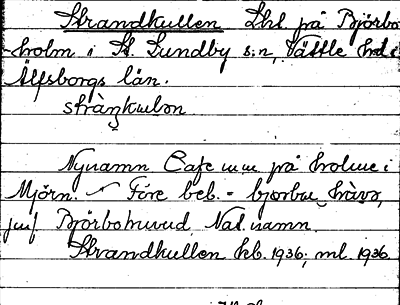 Strandkullen Lht på Björbo-
holm i St. Lundby s:n, Vättle hd i
Älfsborgs län.
stràn̂kulən
Nynamn Cafe m.m. på holme i
Mjörn. Före beb. = bjørbu hùvə,
jmf Björbohuvud, Nat. namn.
Strandkullen kb. 1936; ml. 1936.